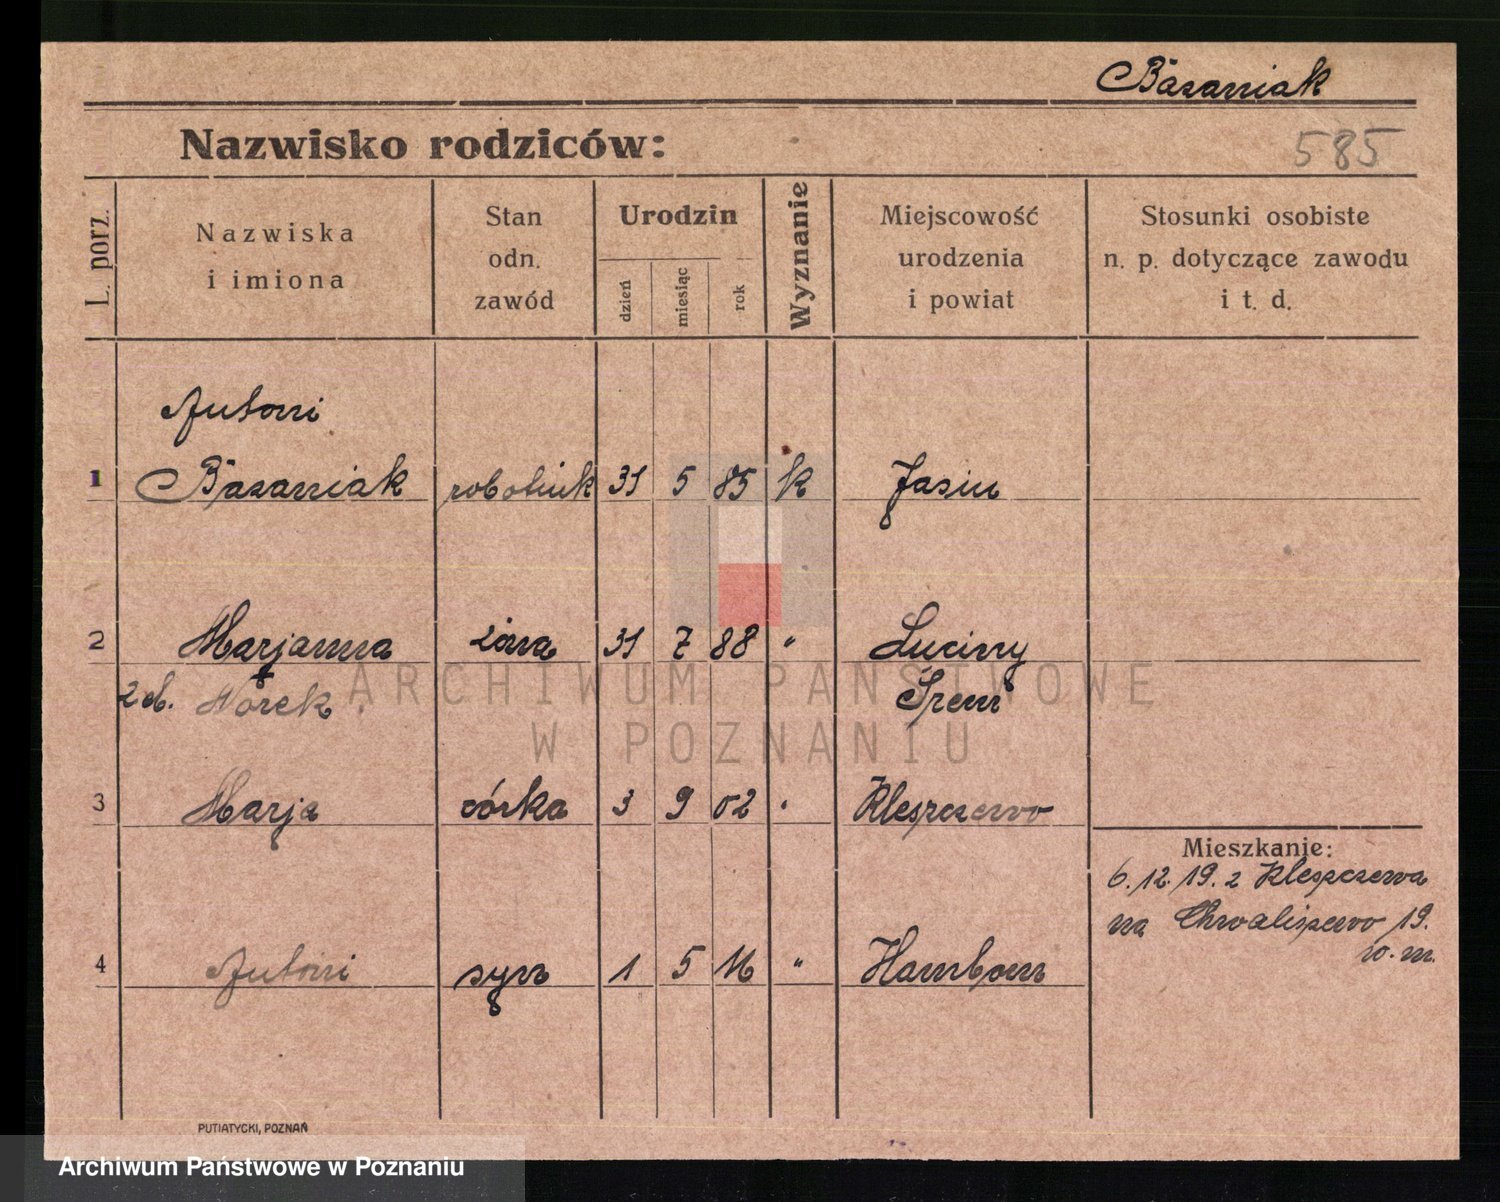 Bäzaniak
Nazwisko rodziców:
585
L. porz.
Nazwiska
i imiona
Stan
odn.
zawód
Urodzin
dzień
miesiąc
rok
Wyznanie
Miejscowość
urodzenia
i powiat
Stosunki osobiste
n. p. dotyczące zawodu
i t. d.
Antoni
1 Bäzaniak robotnik 31 5 85 k Jasin
2 Marjanna żona 31 7 88 " Luciny
zd. Norek Śrem
3 Marja córka 3 9 02 " Kleszczewo
Mieszkanie:
6.12.19. z Kleszczewa
na Chwaliszewo 19.
w. m.
4 Antoni syn 1 5 16 " Hamborn
ARCHIWUM PAŃSTWOWE
W POZNANIU
PUTIATYCKI, POZNAŃ
Archiwum Państwowe w Poznaniu